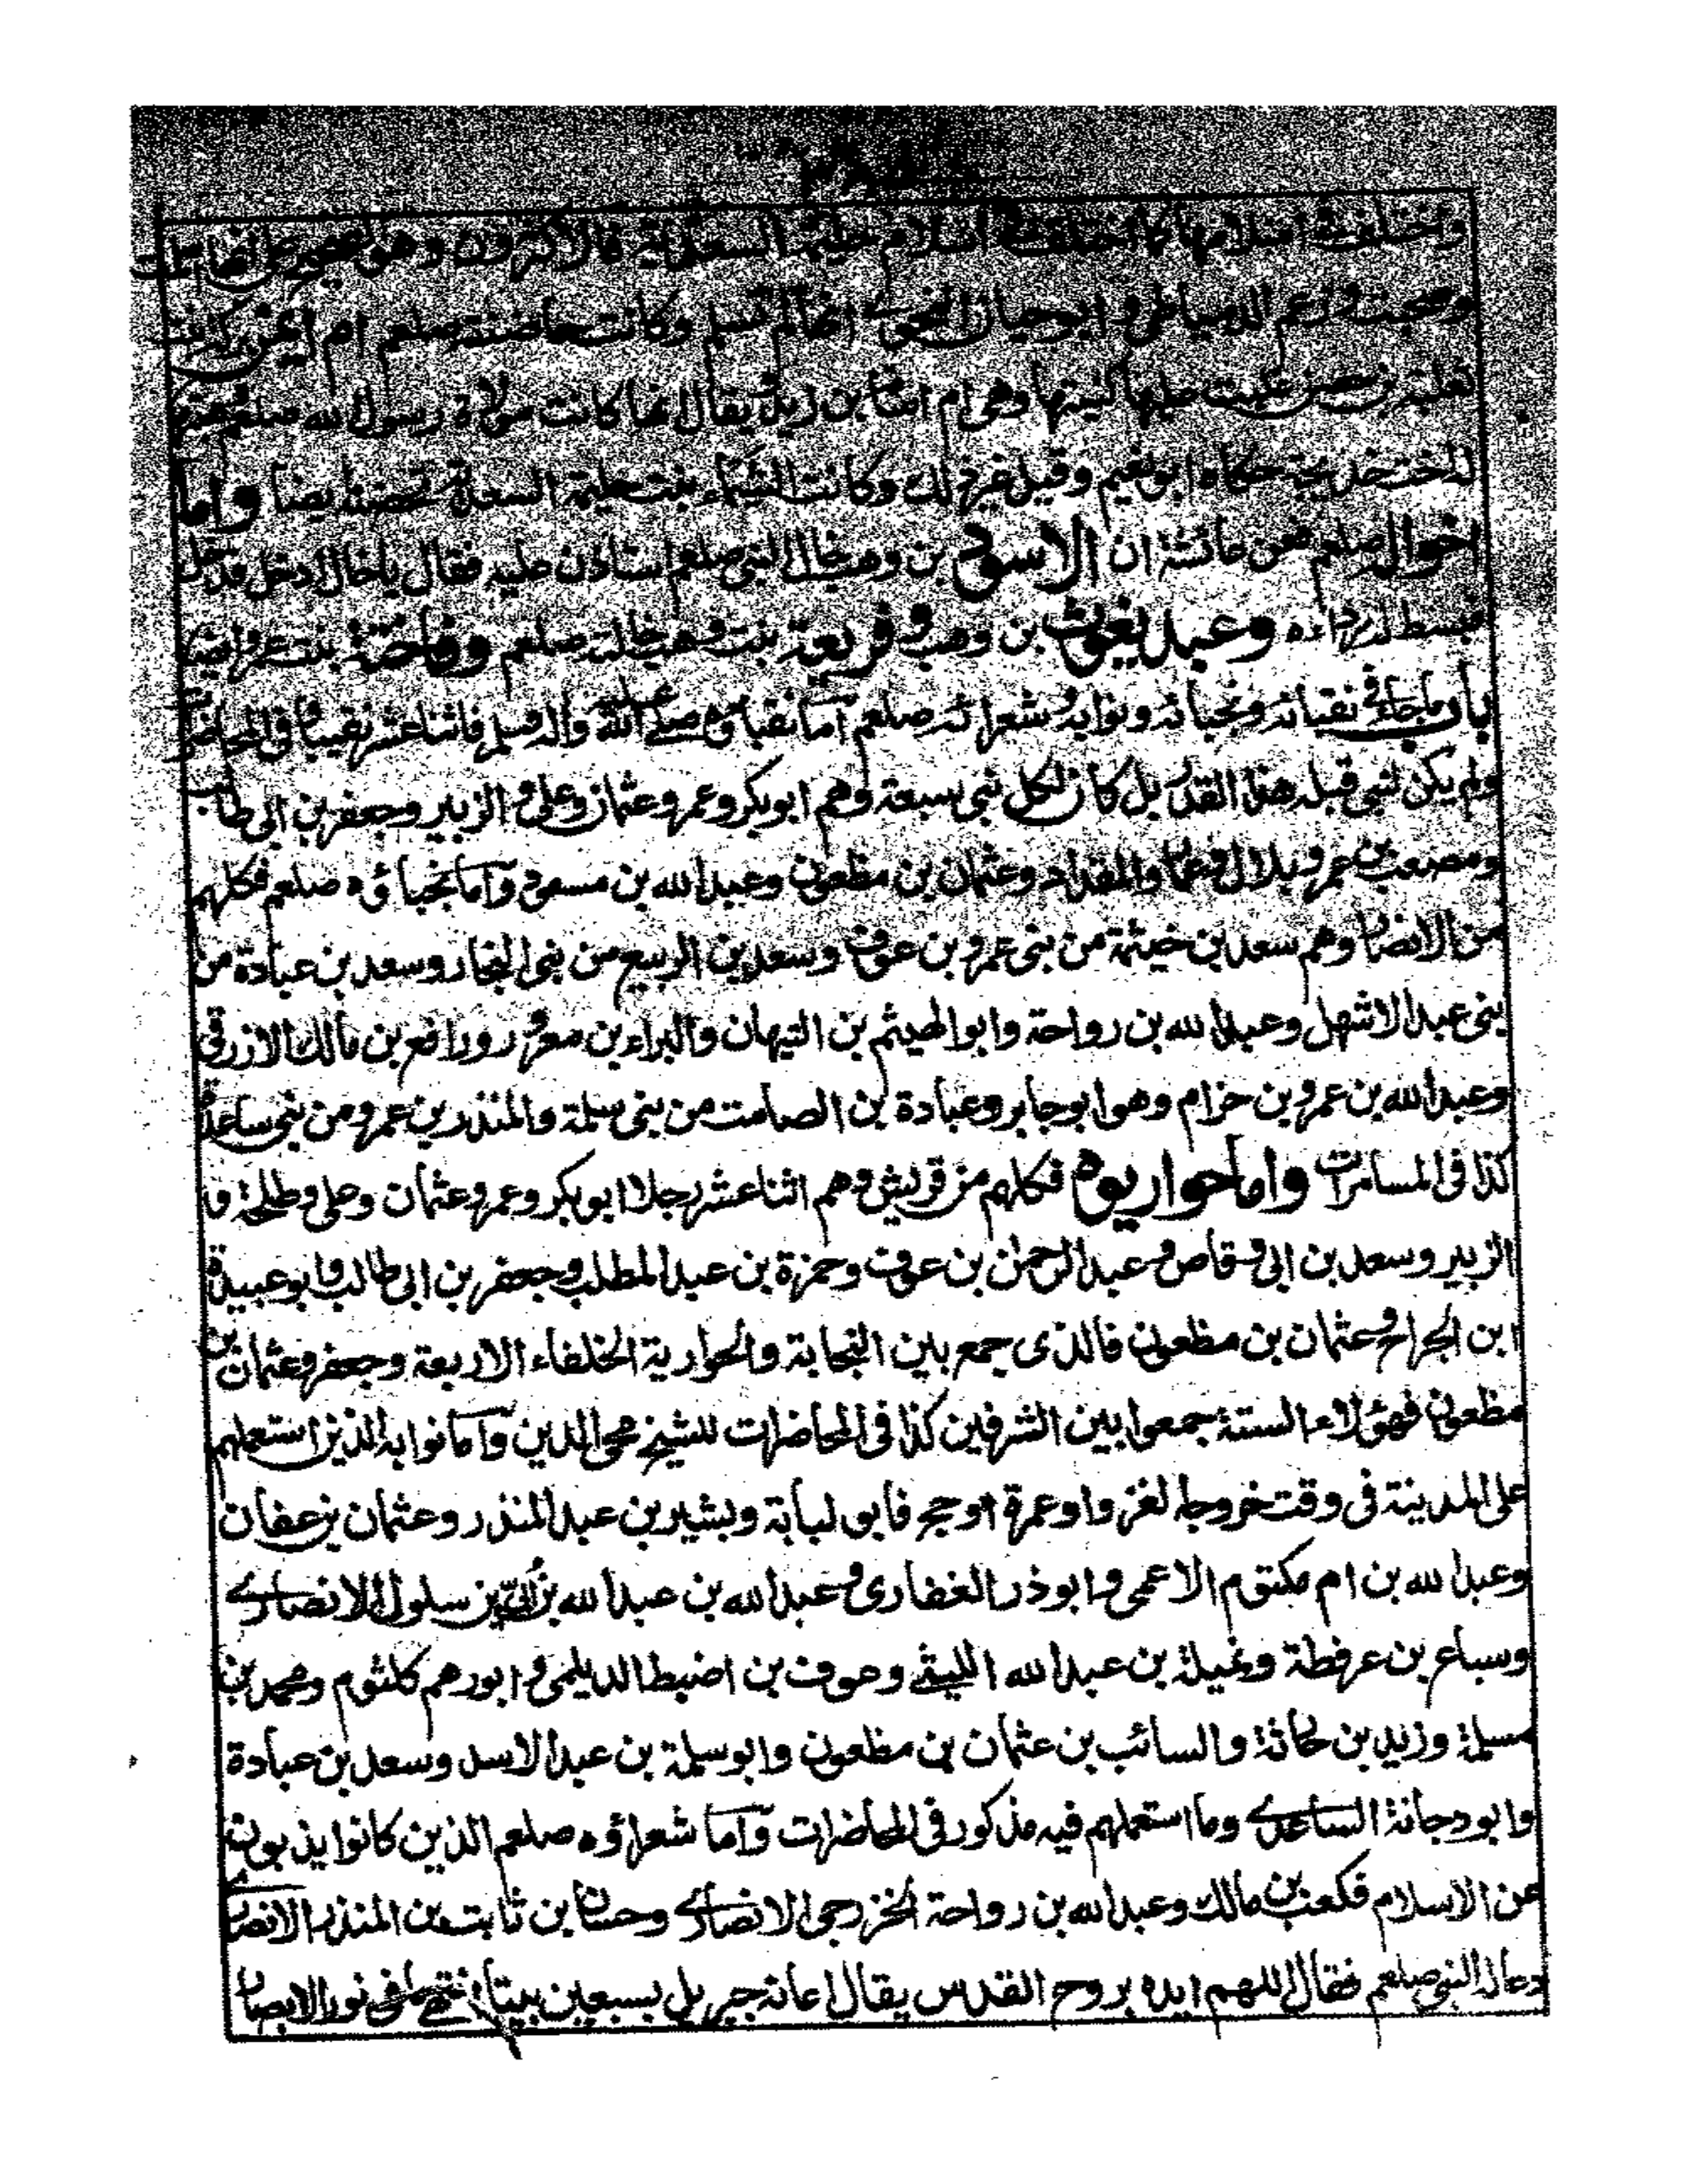 واختلف في اسلامها كما اختلف في اسلام حليمة السعدية فالاكثرون وهو الصحيح على انها اسلمت
وصحبت وزعم الدمياطي وابو حيان النحوي انها لم تسلم وكانت حاضنته صلعم ام ايمن بركة بنت
ثعلبة بن حصن غلبت عليها كنيتها وهي ام اسامة بن زيد ويقال انها كانت مولاة رسول الله صلعم
لاخت خديجة حكاه ابو نعيم وقيل غير ذلك وكانت الشيماء بنت حليمة السعدية تحضنه ايضا واما
اخوال صلعم فعن عائشة ان الاسود بن وهب خال النبي صلعم استاذن عليه فقال يا خال ادخل فدخل
فبسط له رداءه وعبد يغوث بن وهب وفريعة بنت وهب خالته صلعم وفاختة بنت عمرو ايضا
باب ما جاء في نقبائه ونجبائه ونوابه وشعرائه صلعم اما نقباؤه صلى الله عليه واله وسلم فاثنا عشر نقيبا وفي المحاضرات
ولم يكن لنبي قبله هذا القدر بل كان لكل نبي سبعة وهم ابوبكر وعمر وعثمان وعلي والزبير وجعفر بن ابي طالب
ومصعب بن عمير وبلال وعمار والمقداد وعثمان بن مظعون وعبد الله بن مسعود واما نجباؤه صلعم فكلهم
من الانصار وهم سعد بن خيثمة من بني عمرو بن عوف وسعد بن الربيع من بني النجار وسعد بن عبادة من
بني عبد الاشهل وعبد الله بن رواحة وابو الهيثم بن التيهان والبراء بن معرور ورافع بن مالك الازرقي
وعبد الله بن عمرو بن حزام وهو ابو جابر وعبادة بن الصامت من بني سلمة والمنذر بن عمرو من بني ساعدة
كذا في المسامرات واما حواريوه فكلهم من قريش وهم اثنا عشر رجلا ابو بكر وعمر وعثمان وعلي وطلحة و
الزبير وسعد بن ابي وقاص وعبد الرحمن بن عوف وحمزة بن عبد المطلب وجعفر بن ابي طالب وابو عبيدة
ابن الجراح وعثمان بن مظعون فالذي جمع بين النجابة والحوارية الخلفاء الاربعة وجعفر وعثمان بن
مظعون فهؤلاء الستة جمعوا بين الشرفين كذا في المحاضرات للشيخ محي الدين واما نوابه الذين استعملهم
على المدينة في وقت خروجه لغزو او عمرة او حج فابو لبابة وبشير بن عبد المنذر وعثمان بن عفان
وعبد الله بن ام مكتوم الاعمى وابو ذر الغفاري وعبد الله بن عبد الله بن ابي بن سلول الانصاري
وسباع بن عرفطة ونميلة بن عبد الله الليثي وعوف بن اضبط الديلمي وابو رهم كلثوم ومحمد بن
مسلمة وزيد بن حارثة والسائب بن عثمان بن مظعون وابو سلمة بن عبد الاسد وسعد بن عبادة
وابو دجانة الساعدي وما استعملهم فيه مذكور في المحاضرات واما شعراؤه صلعم الذين كانوا يذبون
عن الاسلام فكعب بن مالك وعبد الله بن رواحة الخزرجي الانصاري وحسان بن ثابت بن المنذر الانصاري
دعا له النبي صلعم فقال اللهم ايده بروح القدس يقال اعانه جبريل بسبعين بيتا انتهى ما في نور الابصار